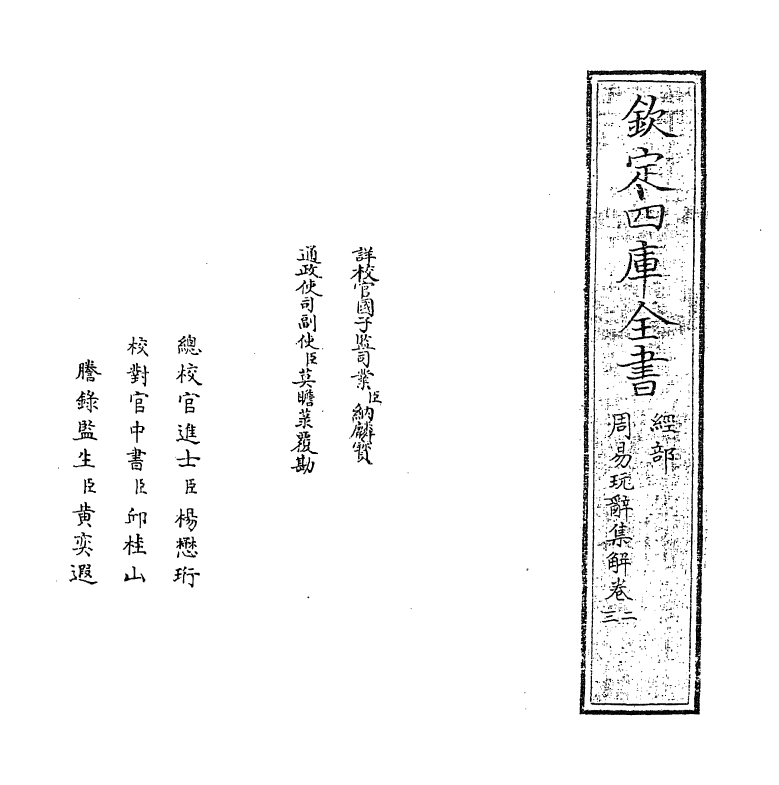 欽定四庫全書
經部
周易玩辭集解卷二三
詳校官國子監司業臣納麟寶
通政使司副使臣莫瞻菉覆勘
總校官進士臣楊懋珩
校對官中書臣邱桂山
謄錄監生臣黄奕遐